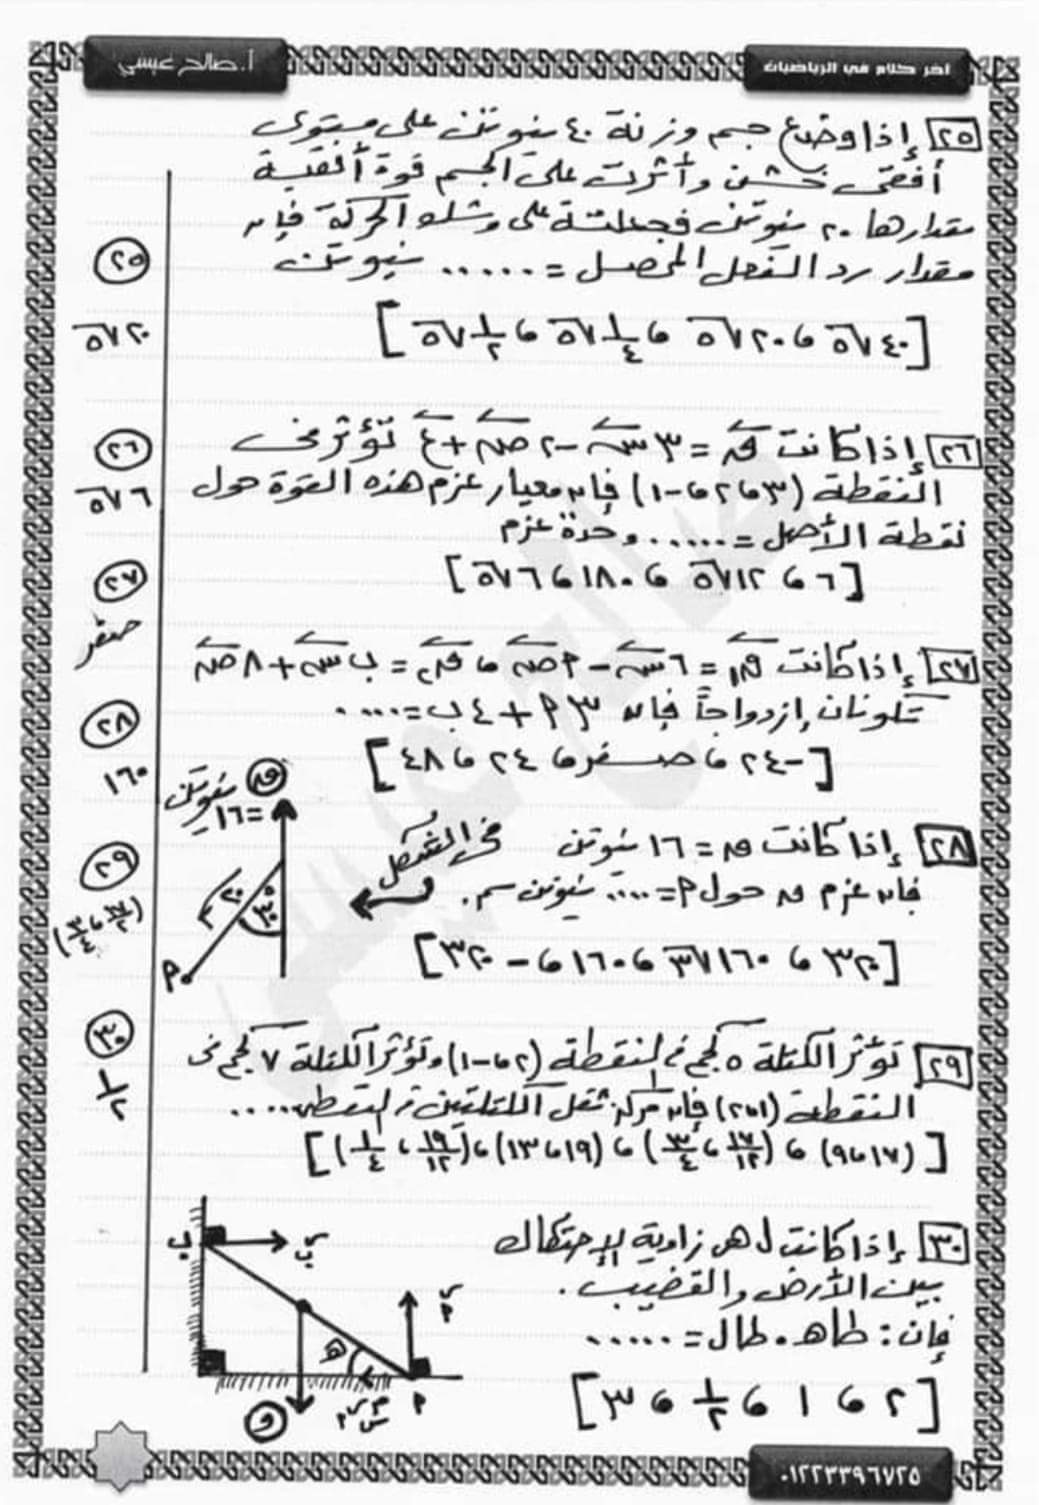 أ.صالح عيسي
آخر كلام في الرياضيات
٢٥ إذا وضع جسم وزنة ٤٠ نيوتن على مستوى
أفقى خشن وأثرت على الجسم قوة أفقية
مقدارها ٢٠ نيوتن فجعلته على وشك الحركة فإن
مقدار رد الفعل المحصل = ...... نيوتن
[ ٤٠√٥ ، ٢٠√٥ ، ١/٤√٥ ، ١/٢√٥ ]
٢٥
٢٠√٥
٢٦ إذا كانت ق = ٣س - ٢ص + ع تؤثر فى
النقطة (٣، ٢، -١) فإن معيار عزم هذه القوة حول
نقطة الأصل = ...... وحدة عزم
[ ٦ ، ١٢√٥ ، ١٨٠ ، ٦√٥ ]
٢٦
٦√٥
٢٧ إذا كانت ق١ = ٦س - ٢ص ، ق٢ = ب س + ٨ص
تكونان إزدواجاً فإن ٣م + ٤ب = .....
[ -٢٤ ، صفر ، ٢٤ ، ٤٨ ]
٢٧
صفر
٢٨ إذا كانت ق = ١٦ نيوتن فى الشكل
فإن عزم ق حول م = ..... نيوتن.سم.
[ ٣٢٠ ، ١٦٠√٣ ، ١٦٠ ، -٣٢٠ ]
ق نيوتن
=١٦
٢٠ سم
٣٠°
م
٢٨
١٦٠
٢٩ تؤثر الكتلة ٥ كجم فى النقطة (٢، -١) وتؤثر الكتلة ٧ كجم فى
النقطة (١، ٢) فإن مركز ثقل الكتلتين : النقطة .....
[ (١٧، ٩) ، (١٧/١٢ ، ٣/٤) ، (١٩، ١٣) ، (١٩/١٢ ، ١/٤) ]
٢٩
(١٧/١٢ ، ٣/٤)
٣٠ إذا كانت ل هى زاوية الإحتكاك
بين الأرض والقضيب.
فإن : طاهـ . طال = ......
[ ٢ ، ١ ، ١/٢ ، ٣ ]
ب
ر ب
ر م
هـ
م
و
٣٠
١/٢
٠١٢٢٣٣٩٦٧٢٥